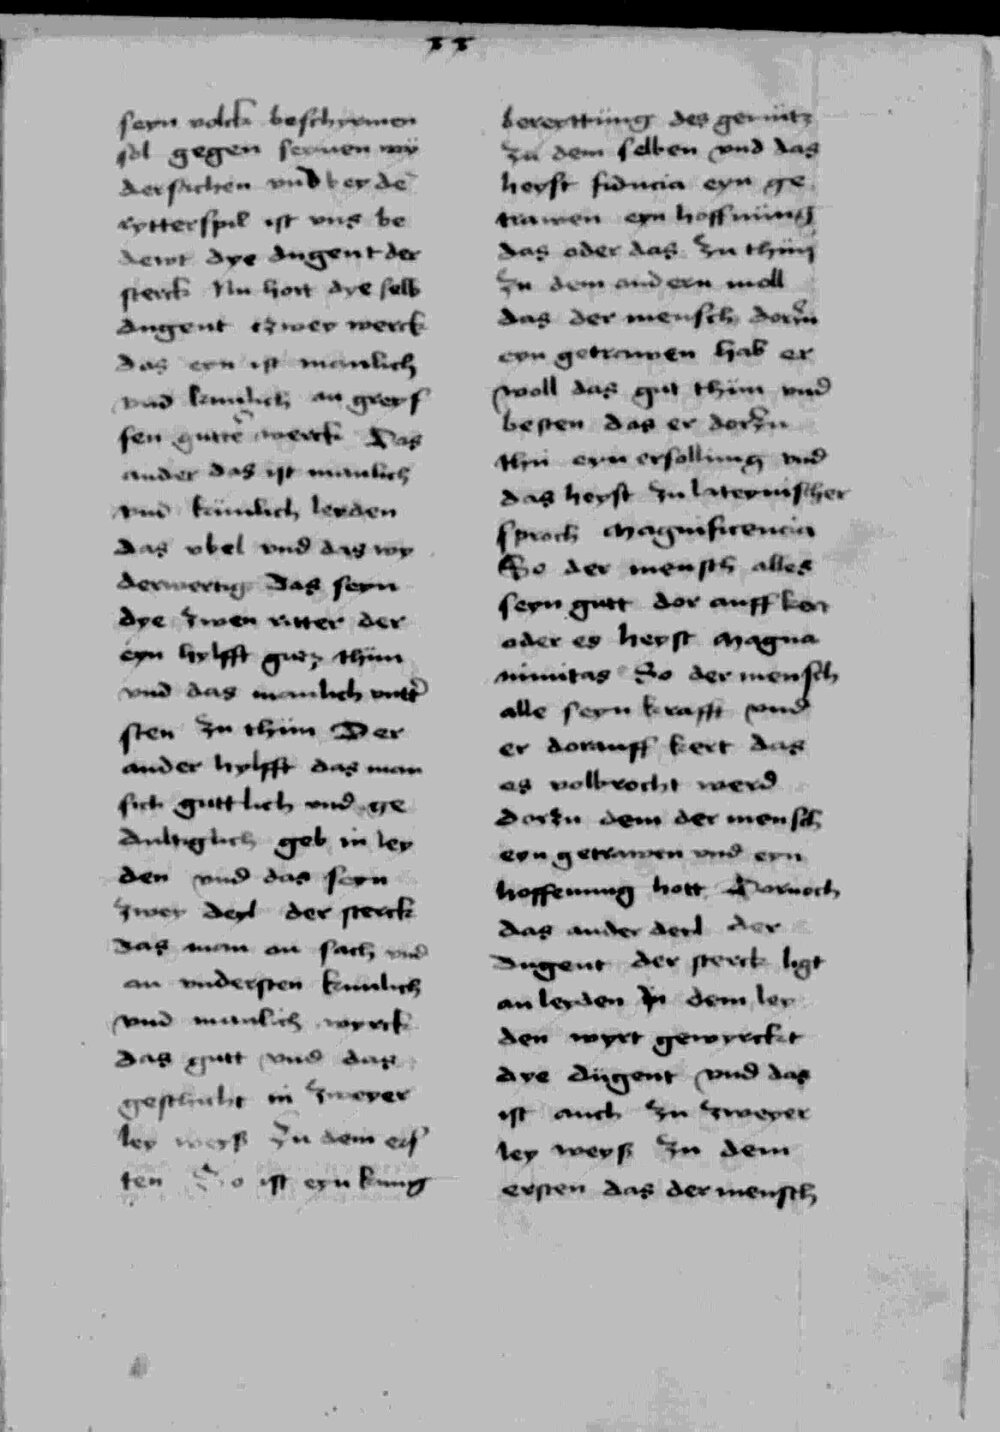 seyn volck beschyrmen
sol gegen seynen wy
dersachen vnd bey de
rytterspil ist vns be
dewt dye dugent der
sterck Nu hort dye selb
dugent czwey werck
das eyn ist manlich
vnd kunlich an greyf
fen gutte werck Das
ander das ist manlich
vnd künlich leyden
das vbel vnd das wy
derwertig Das seyn
dye zwen ritter der
eyn hylfft gutz thün
vnd das manlich vntt
sten zu thün Der
ander hylfft das man
sich guttlich vnd ge
dultiglich geb in ley
den vnd das seyn
zwey deyl der sterck
das man an sach vnd
an vndersten kunlich
vnd manlich wyrck
das gutt vnd das
geschicht in zweyer
ley weyß Zu dem ers
ten So ist eyn kung
bereyttüng des gemütz
zu dem selben vnd das
heyst fiducia eyn ge
trawen eyn hoffnüng
das oder das zu thün
Zu dem andern moll
das der mensch dorzu
eyn getrawen hab er
woll das gut thün vnd
besten das er dorzu
thü eyn ersollung vnd
das heyst zu lateynischer
sproch Magnificencia
So der mensch alles
seyn gutt dor auff kert
oder es heyst Magna
nimitas So der mensch
alle seyn krafft vnd
er dorauff kert das
es volbrocht werd
dorzu dem der mensch
eyn getrawen vnd eyn
hoffenung hott Dornoch
das ander deyl der
dugent der sterck ligt
an leyden In dem ley
den wyrt gewyrckt
dye dügent vnd das
ist auch zu zweyer
ley weyß Zu dem
ersten das der mensch